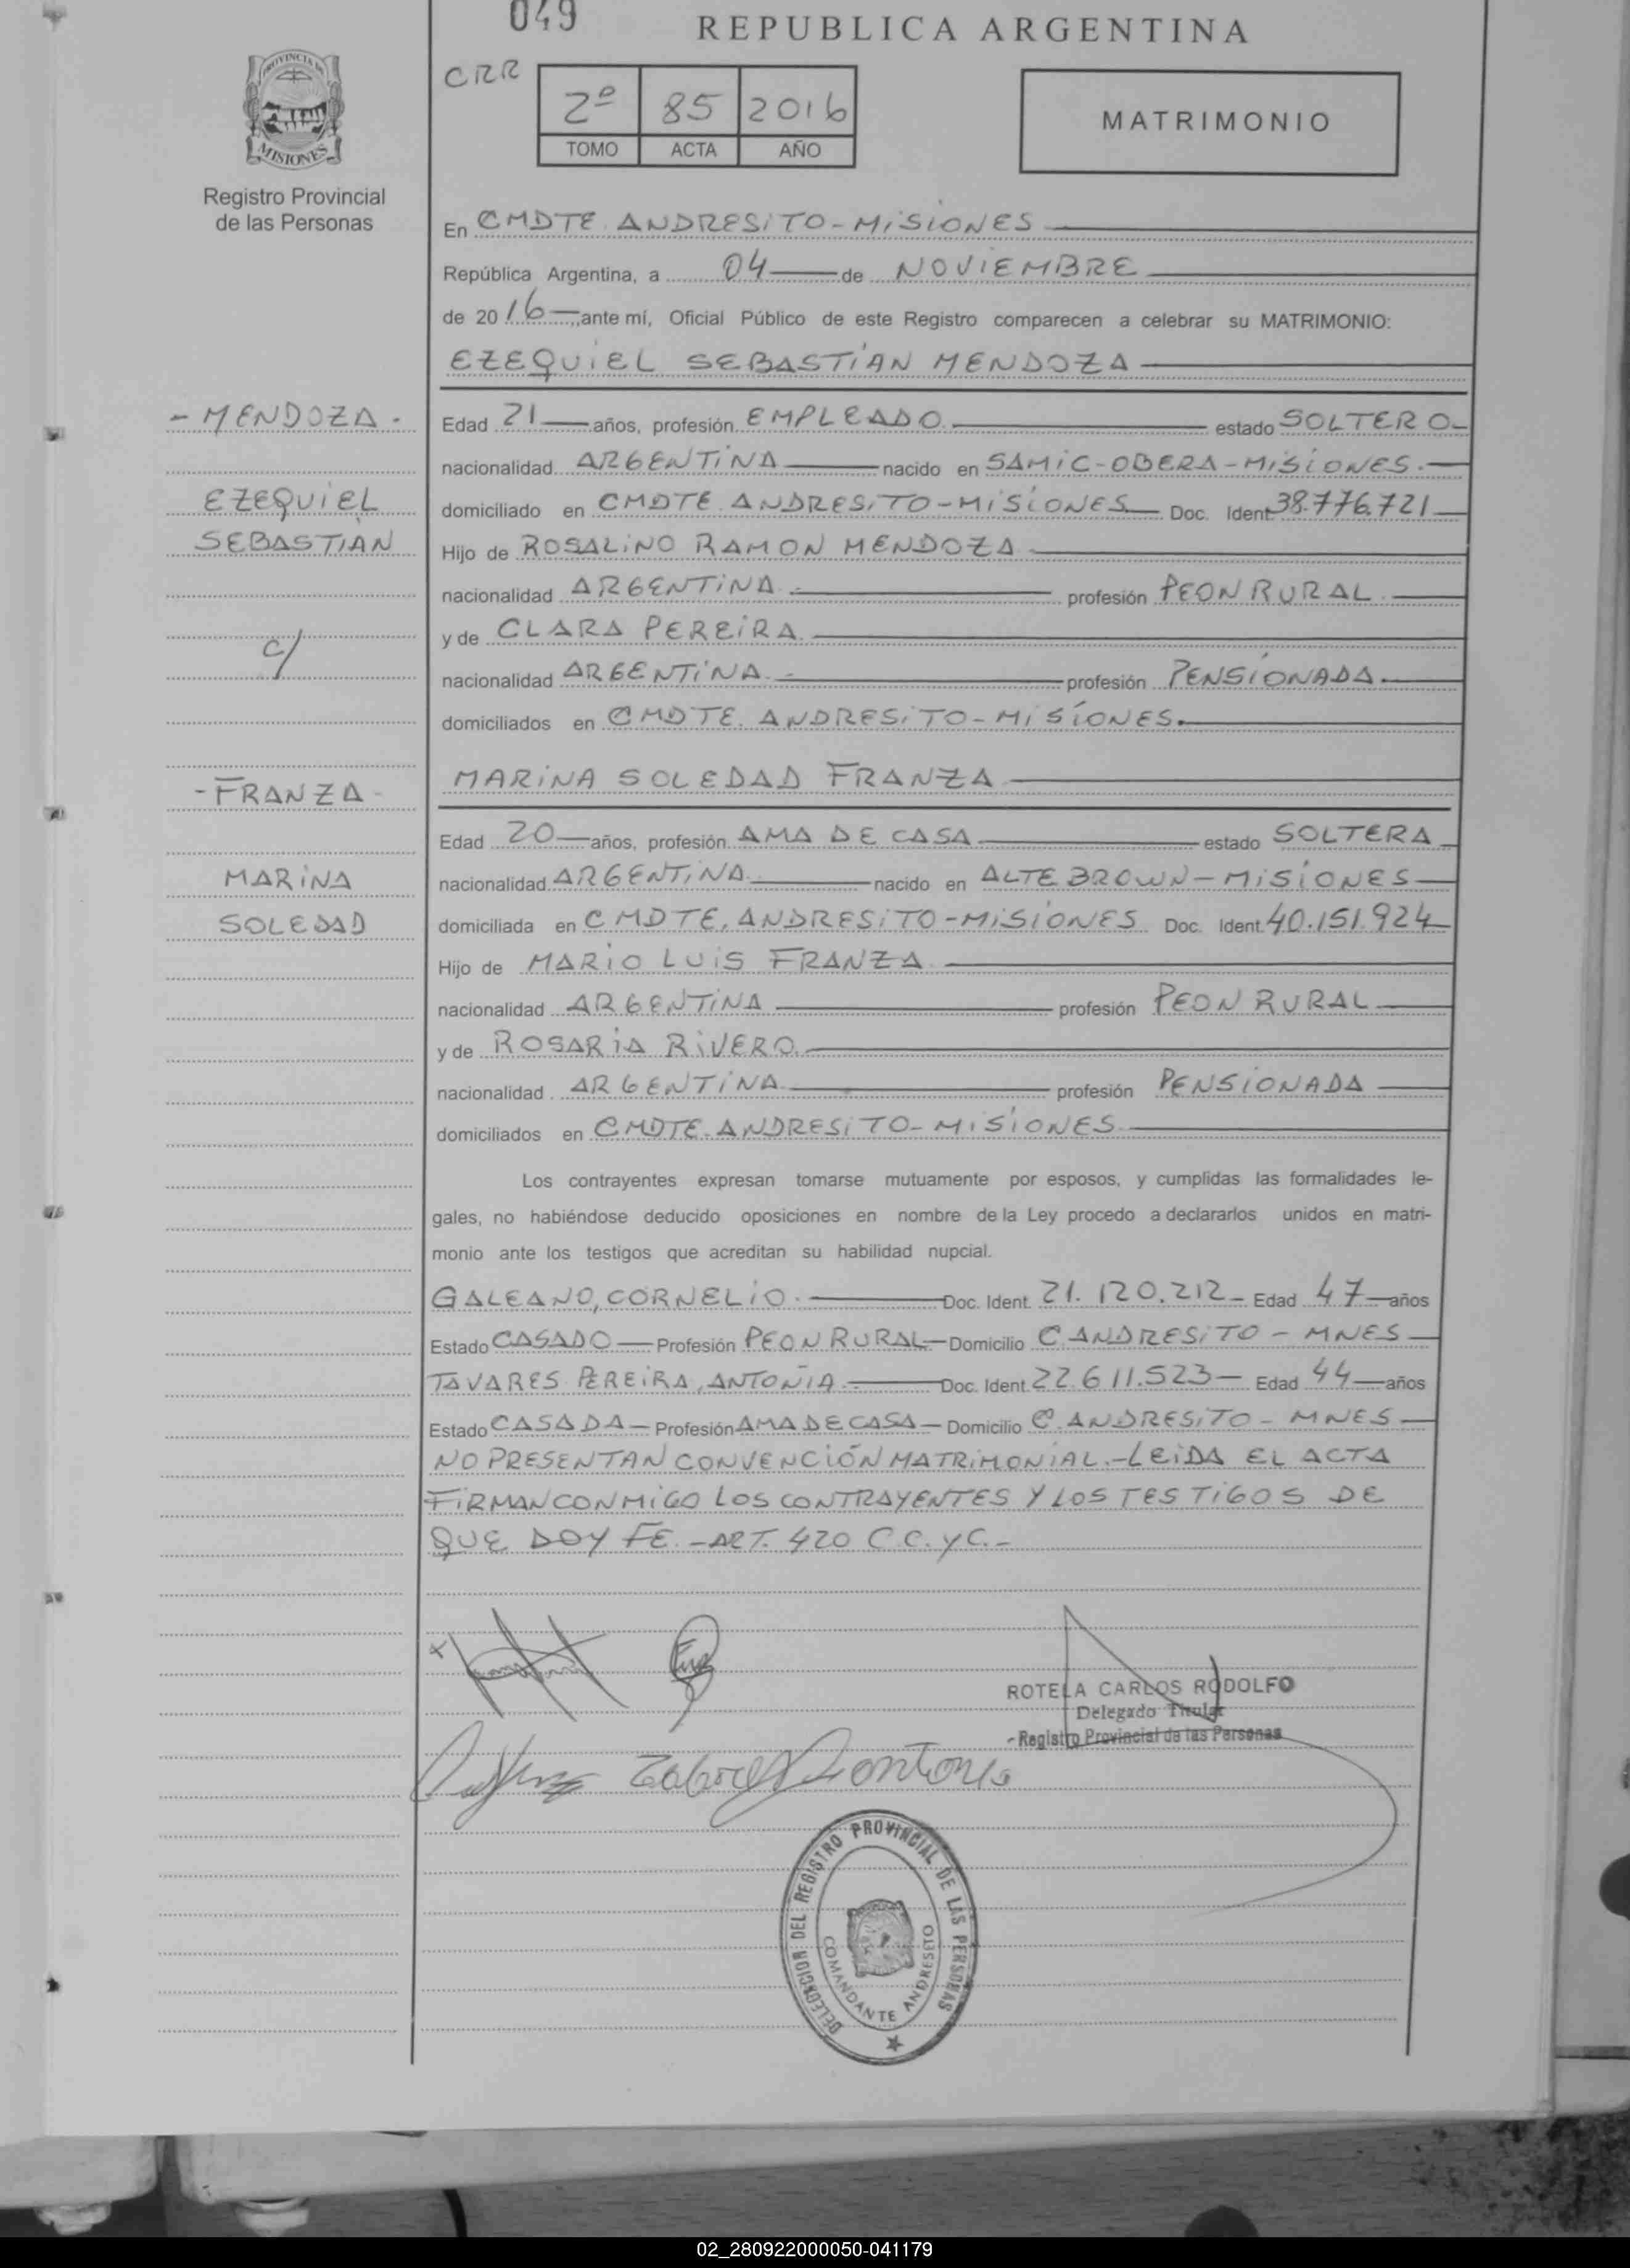 049
REPUBLICA ARGENTINA
CRR
2º 85 2016
TOMO ACTA AÑO
MATRIMONIO
PROVINCIA DE
MISIONES
Registro Provincial
de las Personas
En CMDTE. ANDRESITO-MISIONES
República Argentina, a 04 de NOVIEMBRE
de 2016, ante mí, Oficial Público de este Registro comparecen a celebrar su MATRIMONIO:
EZEQUIEL SEBASTIAN MENDOZA
- MENDOZA -
EZEQUIEL
SEBASTIAN
c/
- FRANZA -
MARINA
SOLEDAD
Edad 21 años, profesión EMPLEADO estado SOLTERO-
nacionalidad ARGENTINA nacido en SAMIC-OBERA-MISIONES.
domiciliado en CMDTE. ANDRESITO-MISIONES Doc. Ident. 38.776.721
Hijo de ROSALINO RAMON MENDOZA
nacionalidad ARGENTINA.- profesión PEON RURAL
y de CLARA PEREIRA.
nacionalidad ARGENTINA.- profesión PENSIONADA.
domiciliados en CMDTE. ANDRESITO-MISIONES.
MARINA SOLEDAD FRANZA
Edad 20 años, profesión AMA DE CASA estado SOLTERA
nacionalidad ARGENTINA nacido en ALTE BROWN-MISIONES
domiciliada en CMDTE. ANDRESITO-MISIONES Doc. Ident. 40.151.924
Hijo de MARIO LUIS FRANZA
nacionalidad ARGENTINA profesión PEON RURAL
y de ROSARIA RIVERO.
nacionalidad ARGENTINA profesión PENSIONADA
domiciliados en CMDTE. ANDRESITO-MISIONES.
Los contrayentes expresan tomarse mutuamente por esposos, y cumplidas las formalidades le-
gales, no habiéndose deducido oposiciones en nombre de la Ley procedo a declararlos unidos en matri-
monio ante los testigos que acreditan su habilidad nupcial.
GALEANO, CORNELIO.- Doc. Ident. 21.120.212- Edad 47 años
Estado CASADO Profesión PEON RURAL- Domicilio C ANDRESITO - MNES
TAVARES PEREIRA, ANTONIA.- Doc. Ident. 22.611.523- Edad 44 años
Estado CASADA- Profesión AMA DE CASA- Domicilio C. ANDRESITO - MNES
NO PRESENTAN CONVENCIÓN MATRIMONIAL.-LEIDA EL ACTA
FIRMAN CONMIGO LOS CONTRAYENTES Y LOS TESTIGOS DE
QUE DOY FE.-ART. 420 C.C. y C.-
x
ROTELA CARLOS RODOLFO
Delegado Titular
- Registro Provincial de las Personas
DELEGACION DEL REGISTRO PROVINCIAL DE LAS PERSONAS
COMANDANTE ANDRESITO
02_280922000050-041179